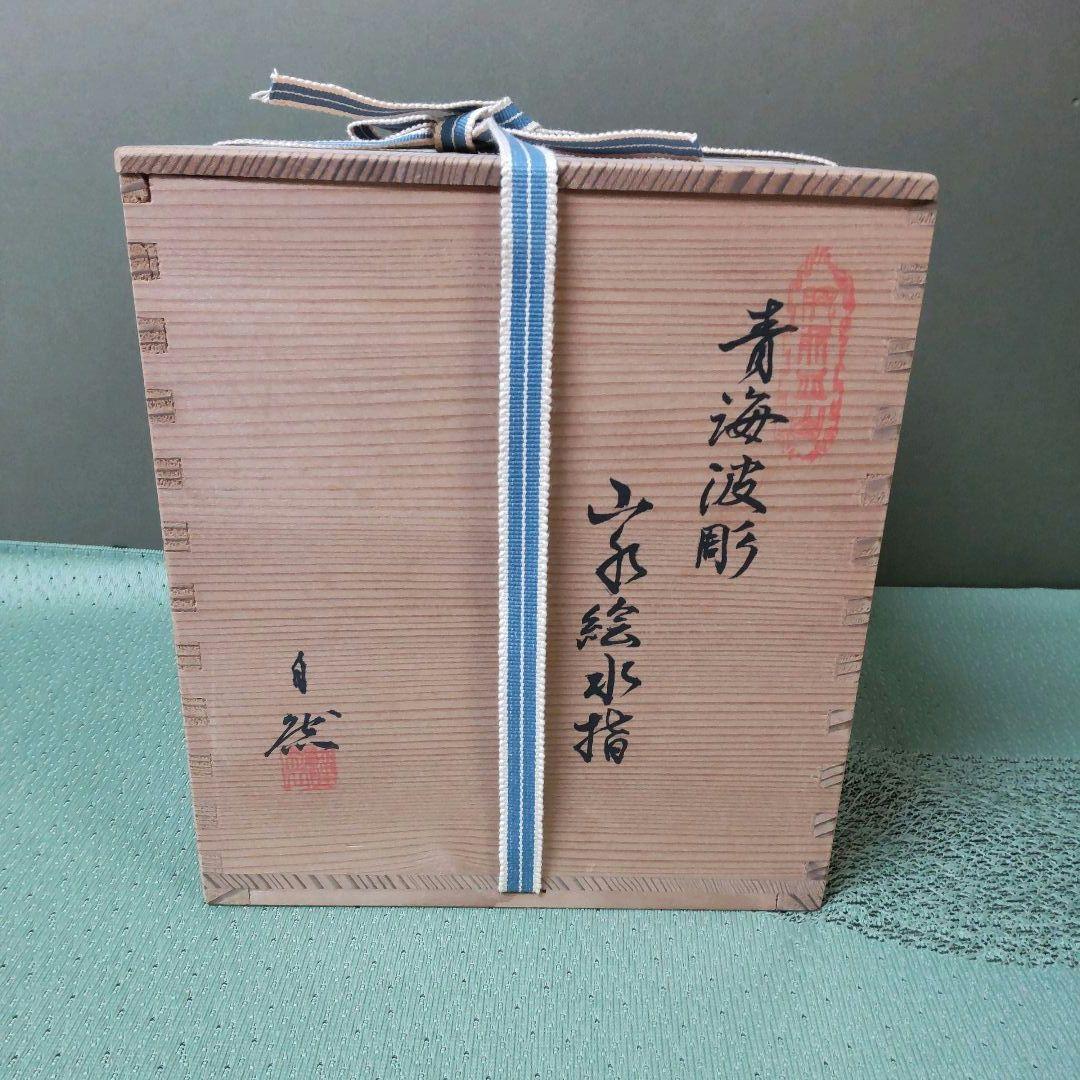 青海波彫
山水絵水指
自然